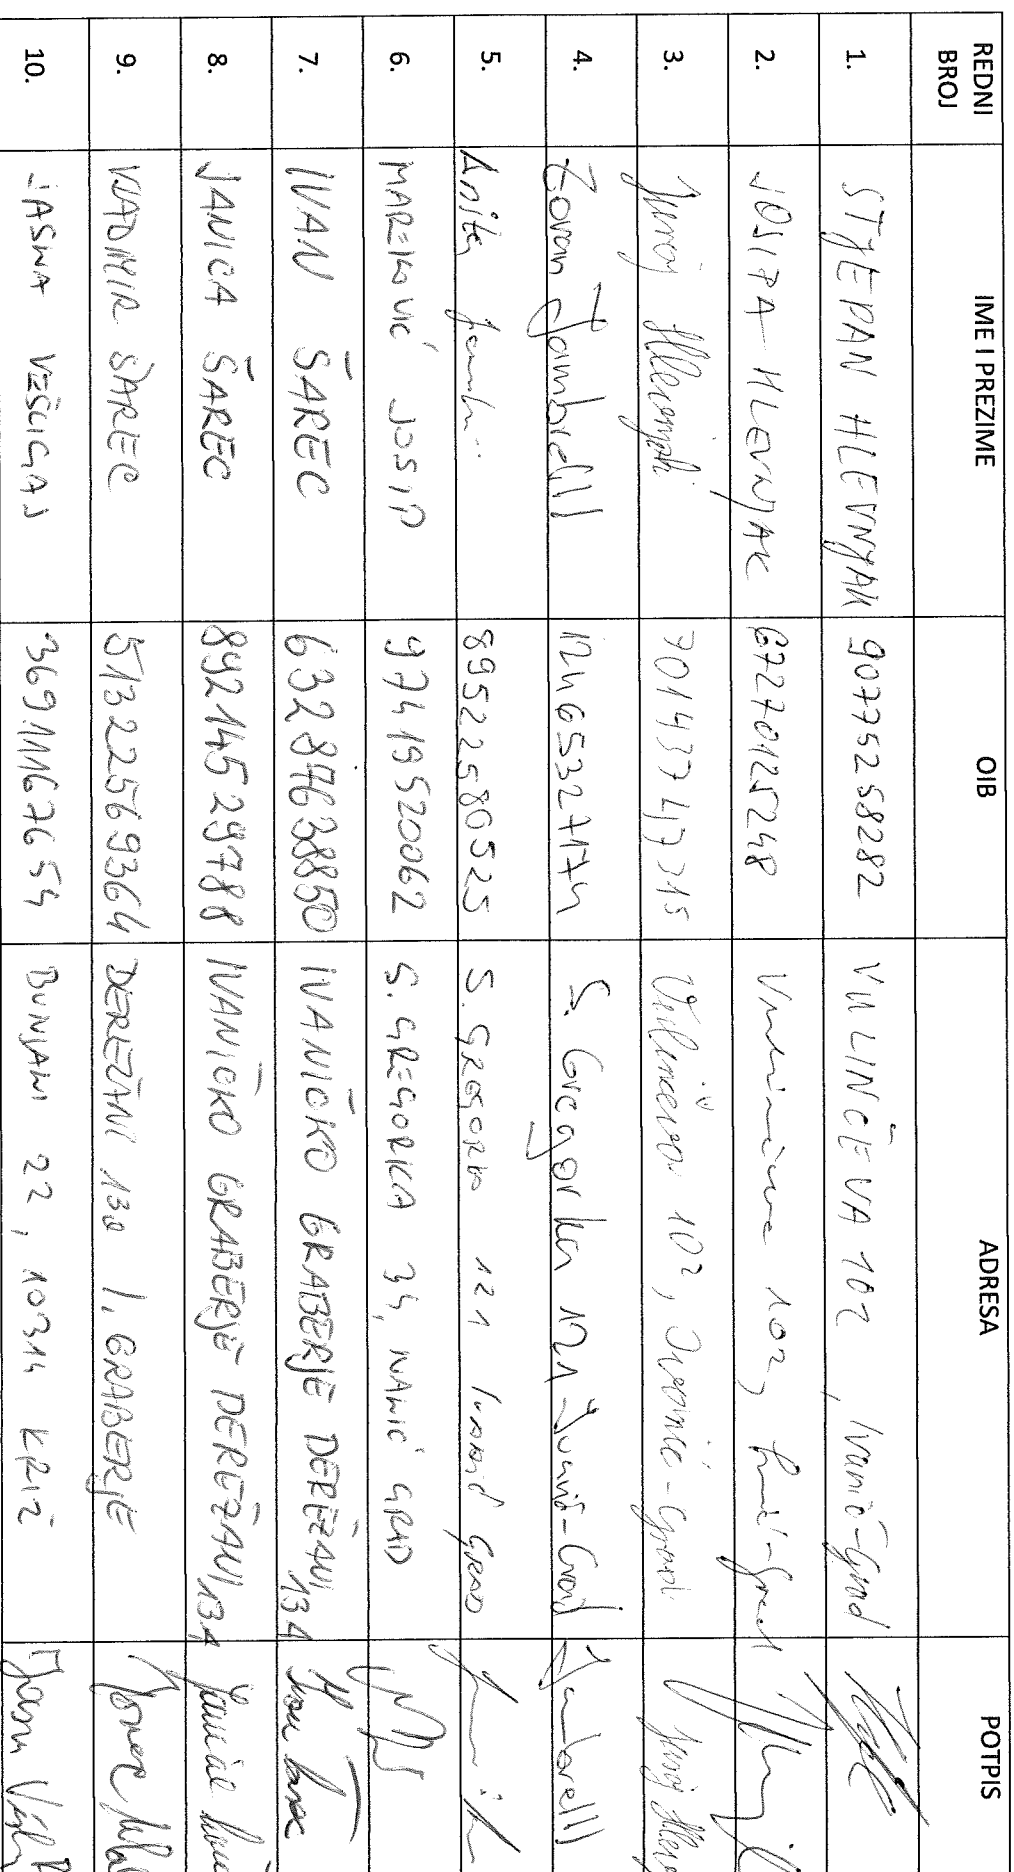 REDNI BROJ IME I PREZIME OIB ADRESA POTPIS
1. STJEPAN HLEVNJAK 90775258282 VULINČEVA 102, Ivanić-Grad
2. JOSIPA HLEVNJAK 67270125248 102,
3. Juraj Hlevnjak 102, Ivanić-Grad
4. Zoran 12465327174 S. Gregorka 121 Ivanić-Grad
5. Anita 89522580525 S. GREGORKA 121 Ivanić GRAD
6. MARENKOVIĆ JOSIP 97419520062 S. GREGORKA 34, IVANIĆ GRAD
7. IVAN ŠAREC 63287638850 IVANIČKO GRABERJE DEREŽANI 134
8. JANICA ŠAREC 89214529788 IVANIČKO GRABERJE DEREŽANI, 134
9. VLADIMIR ŠAREC 51322569364 DEREŽANI 130 I. GRABERJE
10. JASNA VEŠLIGAJ 36911167654 BUNJANI 22, 10314 KRIŽ